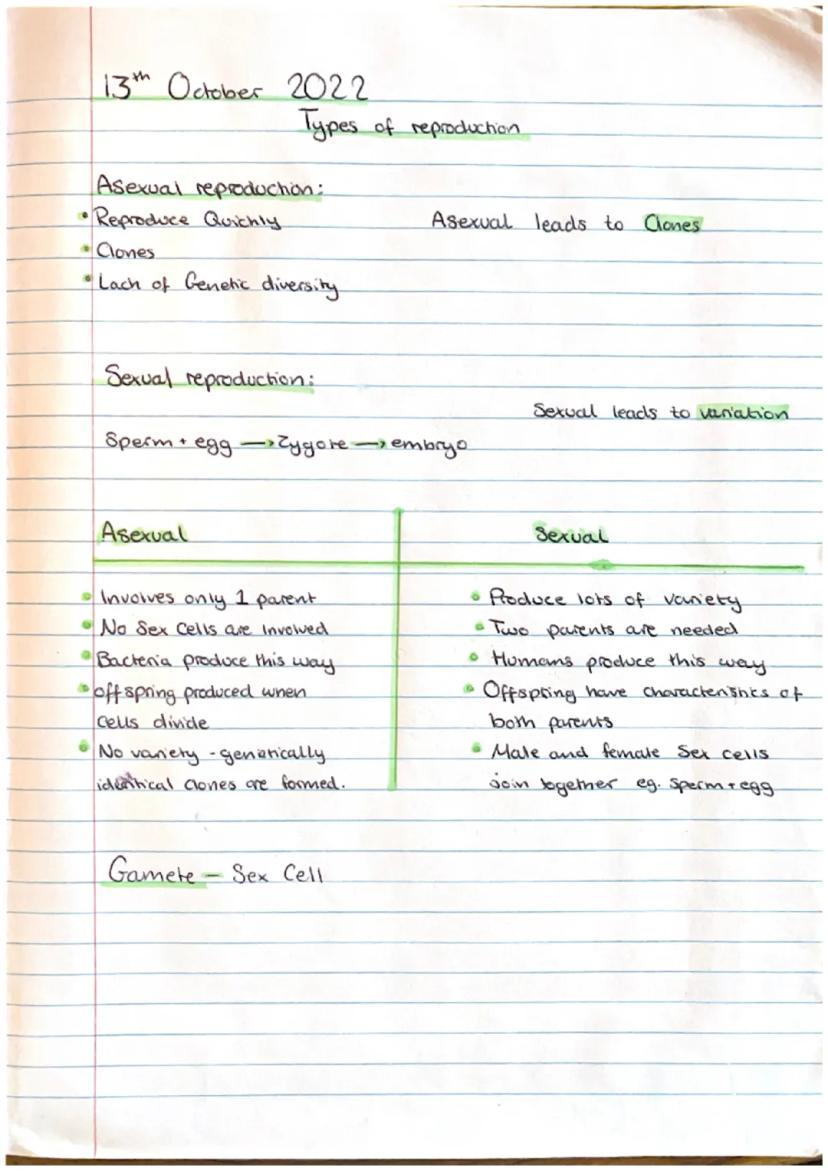 13th October 2022
Types of reproduction
Asexual reproduction:
• Reproduce Quickly
Asexual leads to Clones
• Clones
• Lack of Genetic diversity
Sexual reproduction:
Sexual leads to variation
Sperm + egg → Zygote → embryo
Asexual
Sexual
• Involves only 1 parent
• No Sex Cells are Involved
• Bacteria produce this way
• offspring produced when
cells divide
• No variety - genetically
identical clones are formed.
• Produce lots of variety
• Two parents are needed
• Humans produce this way
• Offspring have characteristics of
both parents
• Male and female Sex cells
Join together eg. Sperm + egg
Gamete – Sex Cell